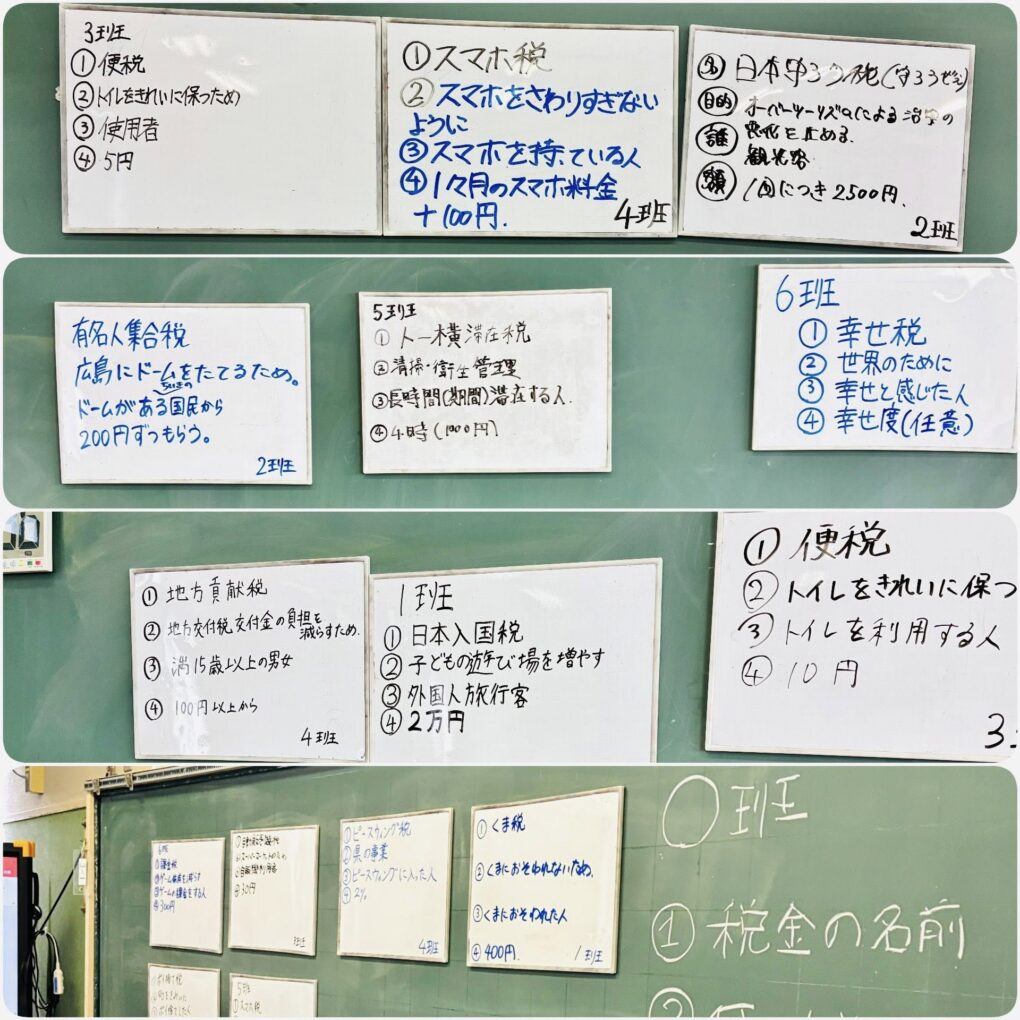 3班
①便税
②トイレをきれいに保つため
③使用者
④5円
①スマホ税
②スマホをさわりすぎない
ように
③スマホを持ている人
④1ヶ月のスマホ料金
+100円.
4班
名 日本守ろう税(守ろうぜい)
目的 オーバーツーリズムによる治安の
悪化を止める.
誰 観光客
額 1回につき2500円.
2班
有名人集合税
広島にドームをたてるため。
ドームがある国民から
200円ずつもらう。
2班
5班
① トー横滞在税
②清掃・衛生管理
③長時間(期間)滞在する人.
④4時(1000円)
6班
①幸せ税
②世界のために
③幸せと感じた人
④幸せ度(任意)
① 地方貢献税
② 地方交付税交付金の負担を
減らすため.
③ 満15歳以上の男女
④ 100円以上から
4班
1班
①日本入国税
②子どもの遊び場を増やす
③外国人旅行客
④2万円
①便税
②トイレをきれいに保つ
③トイレを利用する人
④10円
3
④300円
④30円
3班
①ピースウィング税
②県の事業
③ピースウィングに入った人
④2%
4班
①くま税
②くまにおそわれないため.
③くまにおそわれた人
④400円.
1班
○班
①税金の名前
5班
①スマホ税